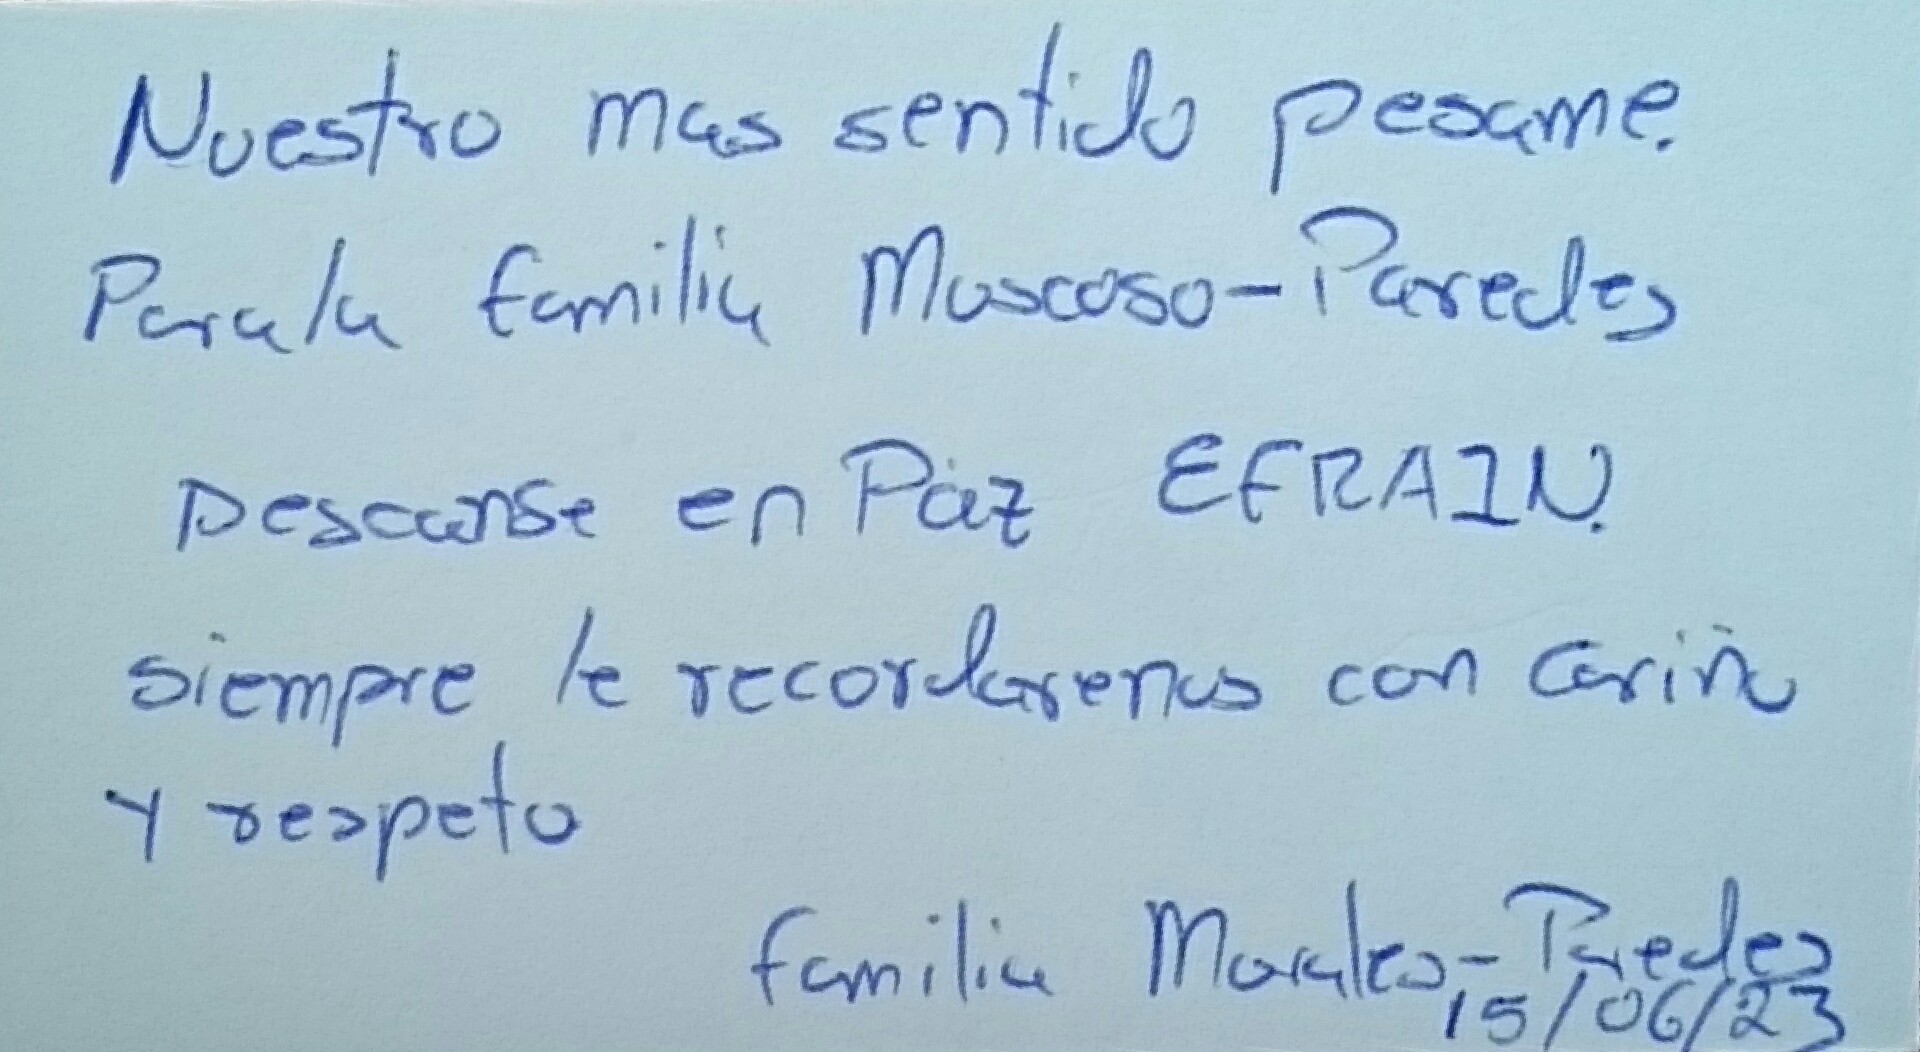 Nuestro mas sentido pesame.
Para la familia Moscoso-Paredes
Descanse en Paz EFRAIN.
siempre le recordaremos con cariño
y respeto
familia Morales-Paredes
15/06/23